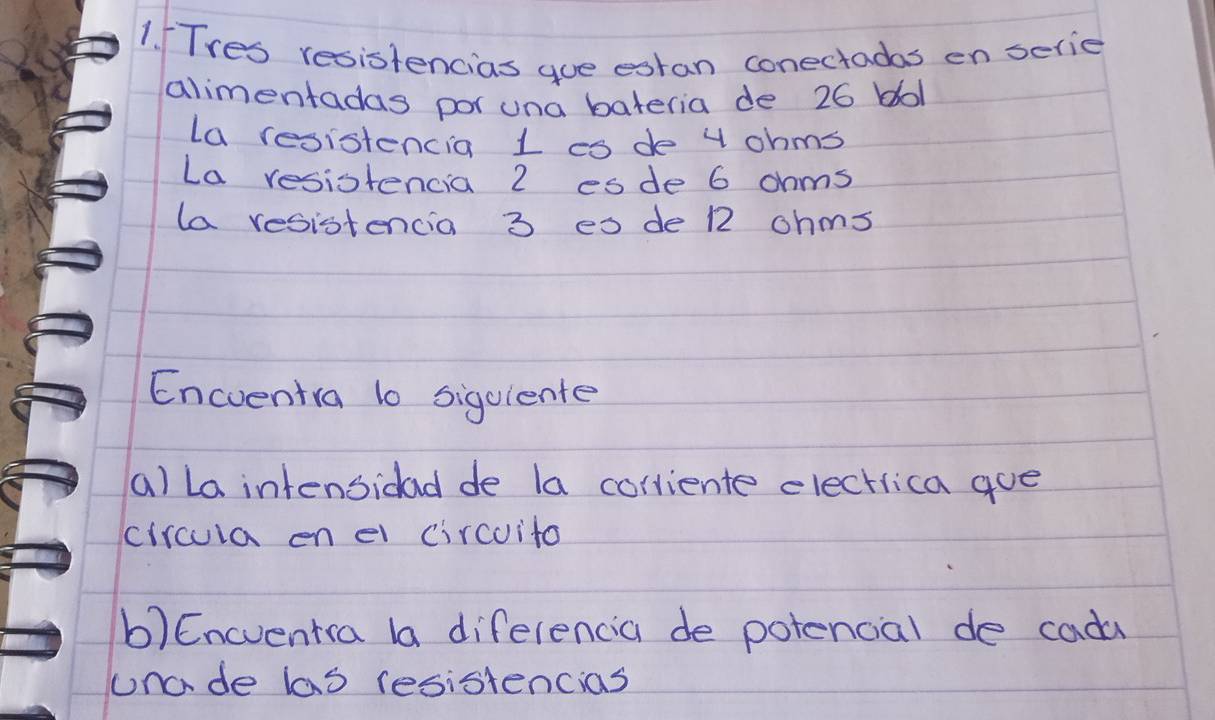 1.- Tres resistencias que estan conectadas en serie
alimentadas por una bateria de 26
La resistencia 1 es de 4 ohms
La resistencia 2 es de 6 ohms
la resistencia 3 es de 12 ohms
Encuentra lo siguiente
a) La intensidad de la corriente electrica que
circula en el circuito
b) Encuentra la diferencia de potencial de cada
una de las resistencias